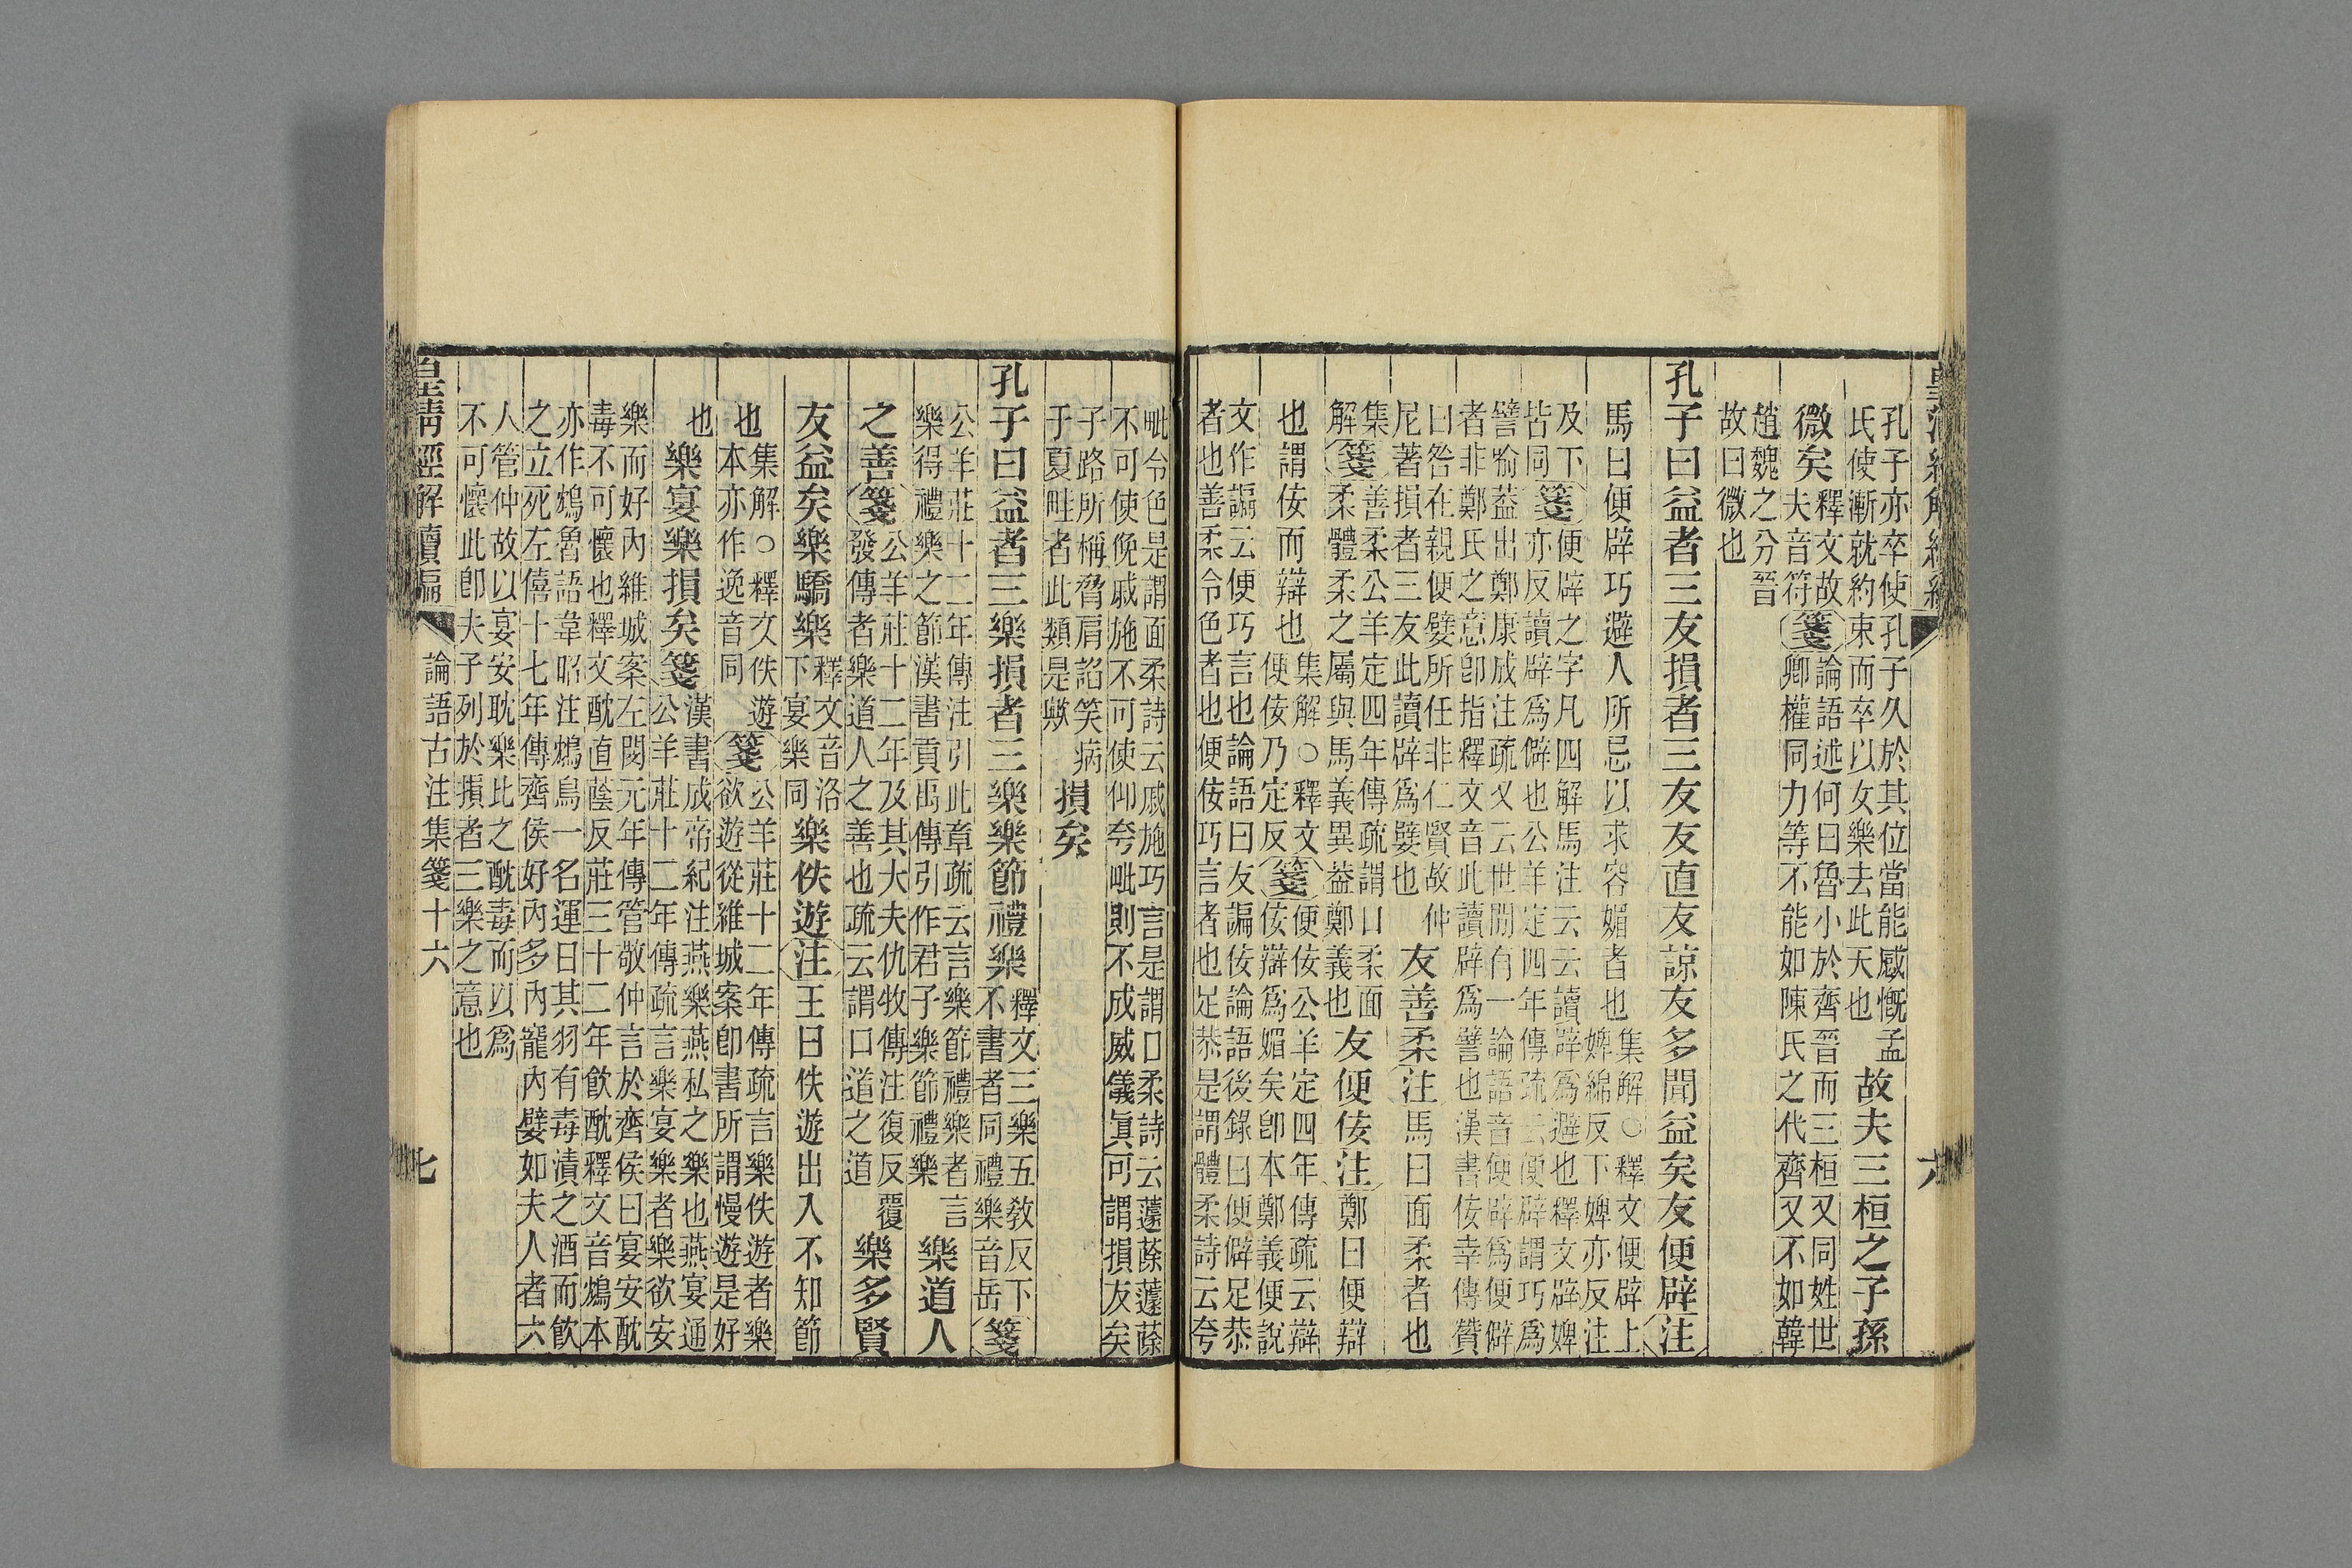 皇清經解續編
六
孔子亦卒使孔子久於其位當能感慨孟
氏使漸就約束而卒以女樂去此天也
故夫三桓之子孫
微矣
釋文故
夫音符
箋
論語述何曰魯小於齊晉而三桓又同姓世
卿權同力等不能如陳氏之代齊又不如韓
趙魏之分晉
故曰微也
孔子曰益者三友損者三友友直友諒友多聞益矣友便辟注
馬曰便辟巧避人所忌以求容媚者也
集解○釋文便辟上
婢綿反下婢亦反注
及下
皆同
箋
便辟之字凡四解馬注云云讀辟爲避也釋文辟婢
亦反讀辟爲僻也公羊定四年傳疏云便辟謂巧爲
譬喻葢出鄭康成注疏又云世閒有一論語音便辟爲便僻
者非鄭氏之意卽指釋文音此讀辟爲譬也漢書佞幸傳贊
曰咎在親便嬖所任非仁賢故仲
尼著損者三友此讀辟爲嬖也
友善柔注馬曰面柔者也
集
解
箋
善柔公羊定四年傳疏謂口柔面
柔體柔之屬與馬義異葢鄭義也
友便佞注鄭曰便辯
也謂佞而辯也
集解○釋文
便佞乃定反
箋
便佞公羊定四年傳疏云辯
佞辯爲媚矣卽本鄭義便說
文作諞云便巧言也論語曰友諞佞論語後錄曰便僻足恭
者也善柔令色者也便佞巧言者也足恭是謂體柔詩云夸
毗令色是謂面柔詩云戚施巧言是謂口柔詩云蘧蒢蘧蒢
不可使俛戚施不可使仰夸毗則不成威儀眞可謂損友矣
子路所稱脅肩諂笑病
于夏畦者此類是歟
損矣
孔子曰益者三樂損者三樂樂節禮樂
釋文三樂五敎反下
不書者同禮樂音岳
箋
公羊莊十二年傳注引此章疏云言樂節禮樂者言
樂得禮樂之節漢書貢禹傳引作君子樂節禮樂
樂道人
之善箋
公羊莊十二年及其大夫仇牧傳注復反覆
發傳者樂道人之善也疏云謂口道之道
樂多賢
友益矣樂驕樂
釋文音洛
下宴樂同
樂佚遊注王曰佚遊出入不知節
也
集解○釋文佚遊
本亦作逸音同
箋
公羊莊十二年傳疏言樂佚遊者樂
欲遊從維城案卽書所謂慢遊是好
也
樂宴樂損矣箋
漢書成帝紀注燕樂燕私之樂也燕宴通
公羊莊十二年傳疏言樂宴樂者樂欲安
樂而好內維城案左閔元年傳管敬仲言於齊侯曰宴安酖
毒不可懷也釋文酖直蔭反莊三十二年飮酖釋文音鴆本
亦作鴆魯語韋昭注鴆鳥一名運日其羽有毒漬之酒而飮
之立死左僖十七年傳齊侯好內多內寵內嬖如夫人者六
人管仲故以宴安耽樂比之酖毒而以爲
不可懷此卽夫子列於損者三樂之意也
皇清經解續編
論語古注集箋十六
七